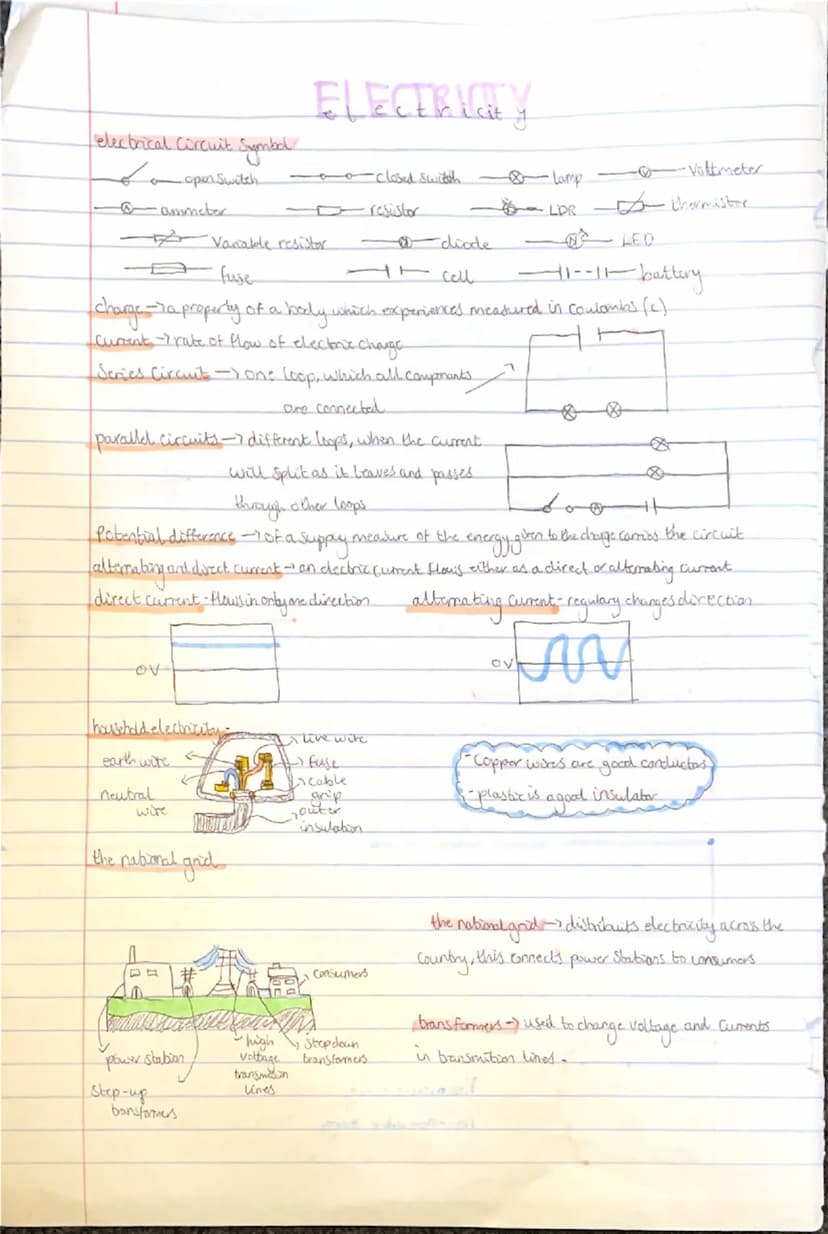 ELECTRICITY
electricity
electrical circuit symbol
open switch closed switch lamp voltmeter
A ammeter resistor LDR thermistor
variable resistor diode LED
fuse cell battery
charge → a property of a body which experiences measured in coulombs (c)
current → rate of flow of electric charge
Series circuit → one loop, which all components
are connected
parallel circuits → different loops, when the current
will split as it leaves and passes
through other loops
Potential difference → of a supply measure of the energy given to the charge carries the circuit
alternating and direct current → an electric current flows either as a direct or alternating current
direct current - flows in only one direction alternating current - regulary changes direction
0V 0V
household electricity-
live wire
earth wire fuse
cable
grip
neutral
wire
outer
insulation
- Copper wires are good conductors
- plastic is a good insulator
the national grid
the national grid → distributits electricity across the
country, this connects power stations to consumers
consumers
transformers → used to change voltage and currents
in transmition lines.
power station
high
voltage
transmission
lines
step down
transformers
Step-up
transformers